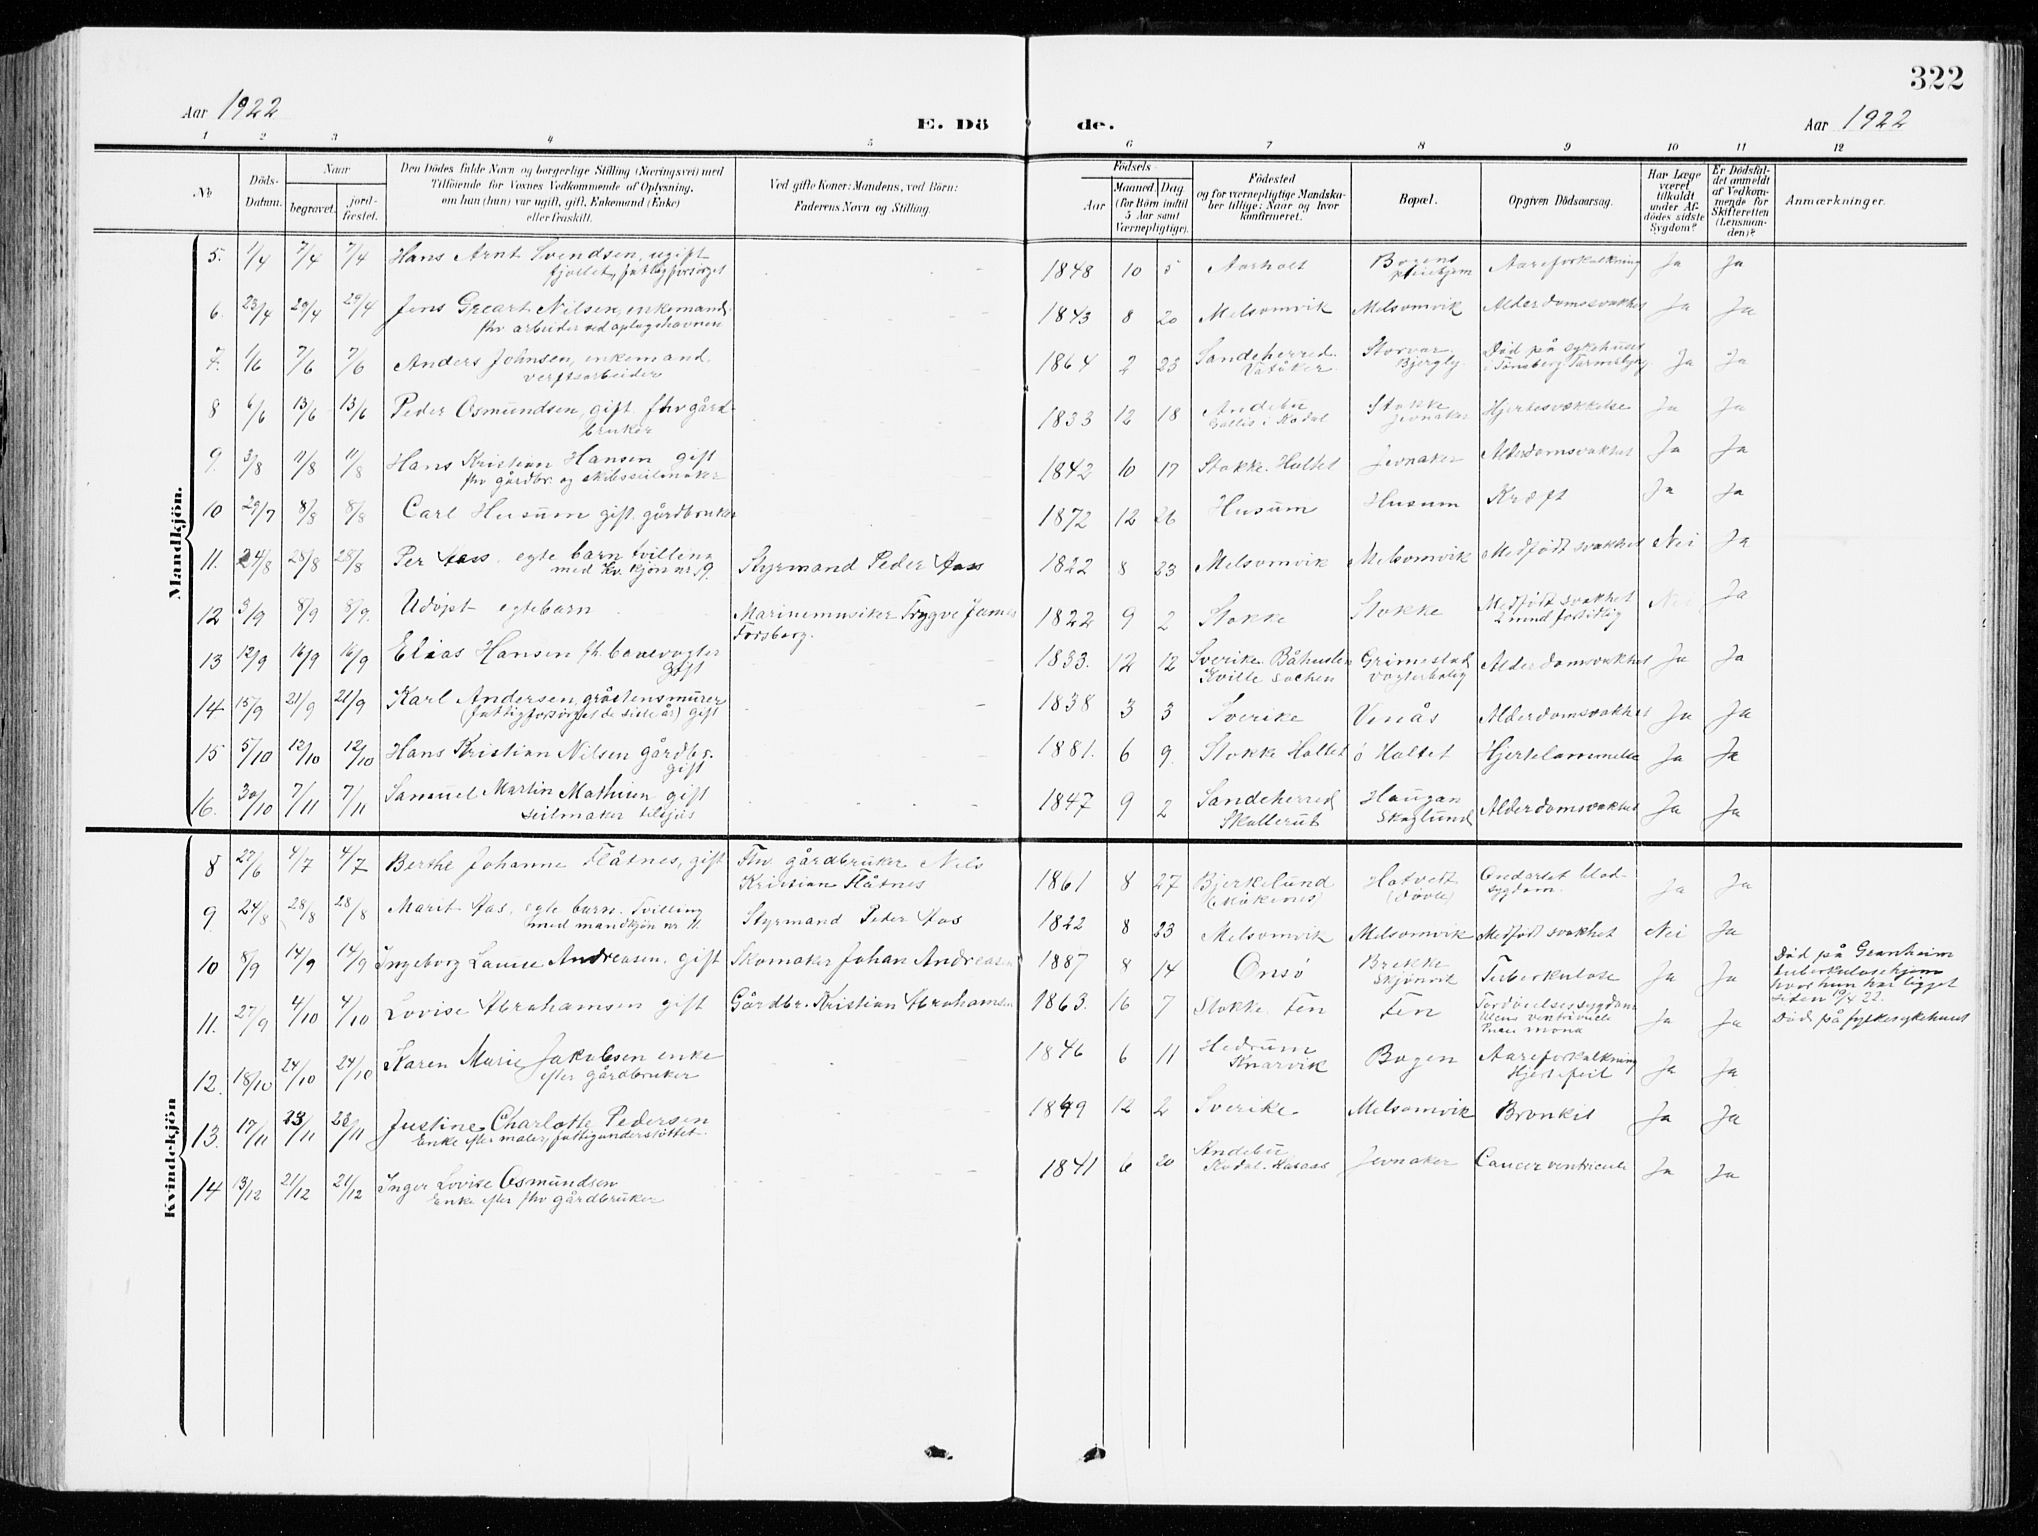 322
Aar 1922
E. Dö de.
Aar 1922
1 2 3 4 5 6 7 8 9 10 11 12
No
Döds-Datum.
Naar
begravet.
jord-fæstet.
Den Dödes fulde Navn og borgerlige Stilling (Næringsvei) med
Tilföiende for Voxnes Vedkommende af Oplysning,
om han (hun) var ugift, gift, Enkemand (Enke)
eller fraskilt.
Ved gifte Koner: Mandens, ved Börn:
Faderens Navn og Stilling.
Födsels
Aar
Maaned. Dag
(for Börn indtil
5 Aar samt
Værnepligtige).
Födested
og for værnepligtige Mandska-
ber tillige: Naar og hvor
konfirmeret.
Bopæl.
Opgiven Dödsaarsag.
Har Læge
været
tilkaldt
under Af-
dödes sidste
Sygdom?
Er Dödsfal-
det anmeldt
af Vedkom-
mende for
Skifteretten
(Lensman-
den)?
Anmærkninger.
Mandkjön.
5. 1/4 7/4 7/4 Hans Arnt Svendsen, ugift 1848 10 5 Aarholt Bogens Aareforkalkning Ja Ja
fattigforsørget pleiehjem
6. 23/4 29/4 29/4 Jens Greart Nilsen, enkemand 1843 8 20 Melsomvik Melsomvik Alderdomssvakhet Ja Ja
fhv arbeider ved oplagshavnen
7. 1/6 7/6 7/6 Anders Johnsen, enkemand 1864 2 23 Sandeherred Storvar Død på sykehuset Ja Ja
verftsarbeider Bjergly i Tønsberg
8 6/6 13/6 13/6 Peder Osmundsen, gift. fhv gård- 1833 12 18 Andebu Stokke Hjertesvækkelse Ja Ja
bruker Gallis i Kodal Jevnaker
9. 3/8 11/8 11/8 Hans Kristian Hansen gift 1842 10 17 Stokke. Holtet Jevnaker Alderdomsvakhet Ja Ja
fhv gårdbr. og skibsseilmaker
10 29/7 8/8 8/8 Carl Husum gift. gårdbruker 1872 12 26 Husum Husum Kræft Ja Ja
11. 24/8 28/8 28/8 Per Aass. egte barn tvilling Styrmand Peder Aas 1822 8 23 Melsomvik Melsomvik Medfødt svakhet Nei Ja
med Kv. kjøn nr. 9.
12 3/9 8/9 8/9. Udøpt egtebarn Marinemusiker Trygve James 1822 9 2 Stokke Stokke Medfødt svakhet Nei Ja
Forsberg. 2 mnd fortidlig
13 12/9 16/9 16/9 Elias Hansen fh. banevogter 1833. 12 12 Sverike Båhuslen Grimestad Alderdomsvakhet Ja Ja
gift Kville sochen vogterbolig
14 15/9 21/9 21/9 Karl Andersen, gråstensmurer 1838 3 3 Sverike Venås Alderdomsvakhet Ja Ja
(fattigforsørget de siste år) gift
15 5/10 12/10 12/10 Hans Kristian Nilsen gårdbr. 1881. 6 9. Stokke Holtet ø Holtet Hjertelammelse Ja Ja
gift
16. 30/10 7/11 7/11 Samuel Martin Mathisen gift 1847 9 2 Sandeherred Haugan Alderdomsvakhet Ja Ja
seilmaker tilsjøs Skallerut Skoglund
Kvindekjön
8 27/6 4/7 4/7 Berthe Johanne Flåtnes, gift Fhv. gårdbruker Nils 1861 8 27 Bjerkelund Hotvedt Ondartet blod- Ja Ja
Kristian Flåtnes sygdom.
9. 24/8 28/8 28/8 Marit Aas, egte barn. Tvilling Styrmand Peder Aas 1822 8 23 Melsomvik Melsomvik Medfødt svakhet Nei Ja
med mandkjøn nr 11.
10 8/9 14/9 14/9 Ingeborg Lauise Andreasen, gift Skomaker Johan Andreasen 1887 8 14 Onsø Brekke Tuberkulose Ja Ja Død på Granheim
Skjønvik tuberkulosehjem
hvor hun har ligget
siden 19/4 22.
11. 27/9 4/10 4/10 Lovise Abrahamsen gift Gårdbr. Kristian Abrahamsen 1863. 10 7 Stokke. Fen Fen Fordøielsessygdom Ja Ja Død på fylkesykehuset
Ulcus ventricule
12. 18/10 24/10 24/10 Karen Marie Jakobsen enke 1846 6 11 Hedrum Bogen Aareforkalkning Ja Ja
efter gårdbruker Knarvik Hjertefeil
13. 17/11 23/11 23/11 Justine Charlotte Pedersen 1849 12 2 Sverike Melsomvik Bronkit Ja Ja
Enke efter maler, fattigunderstöttet.
14 13/12 21/12 21/12 Inger Lovise Osmundsen 1841 6 20 Andebu Jevnaker Cancer ventricule Ja Ja
Enke efter fhv gårdbruker Kodal.